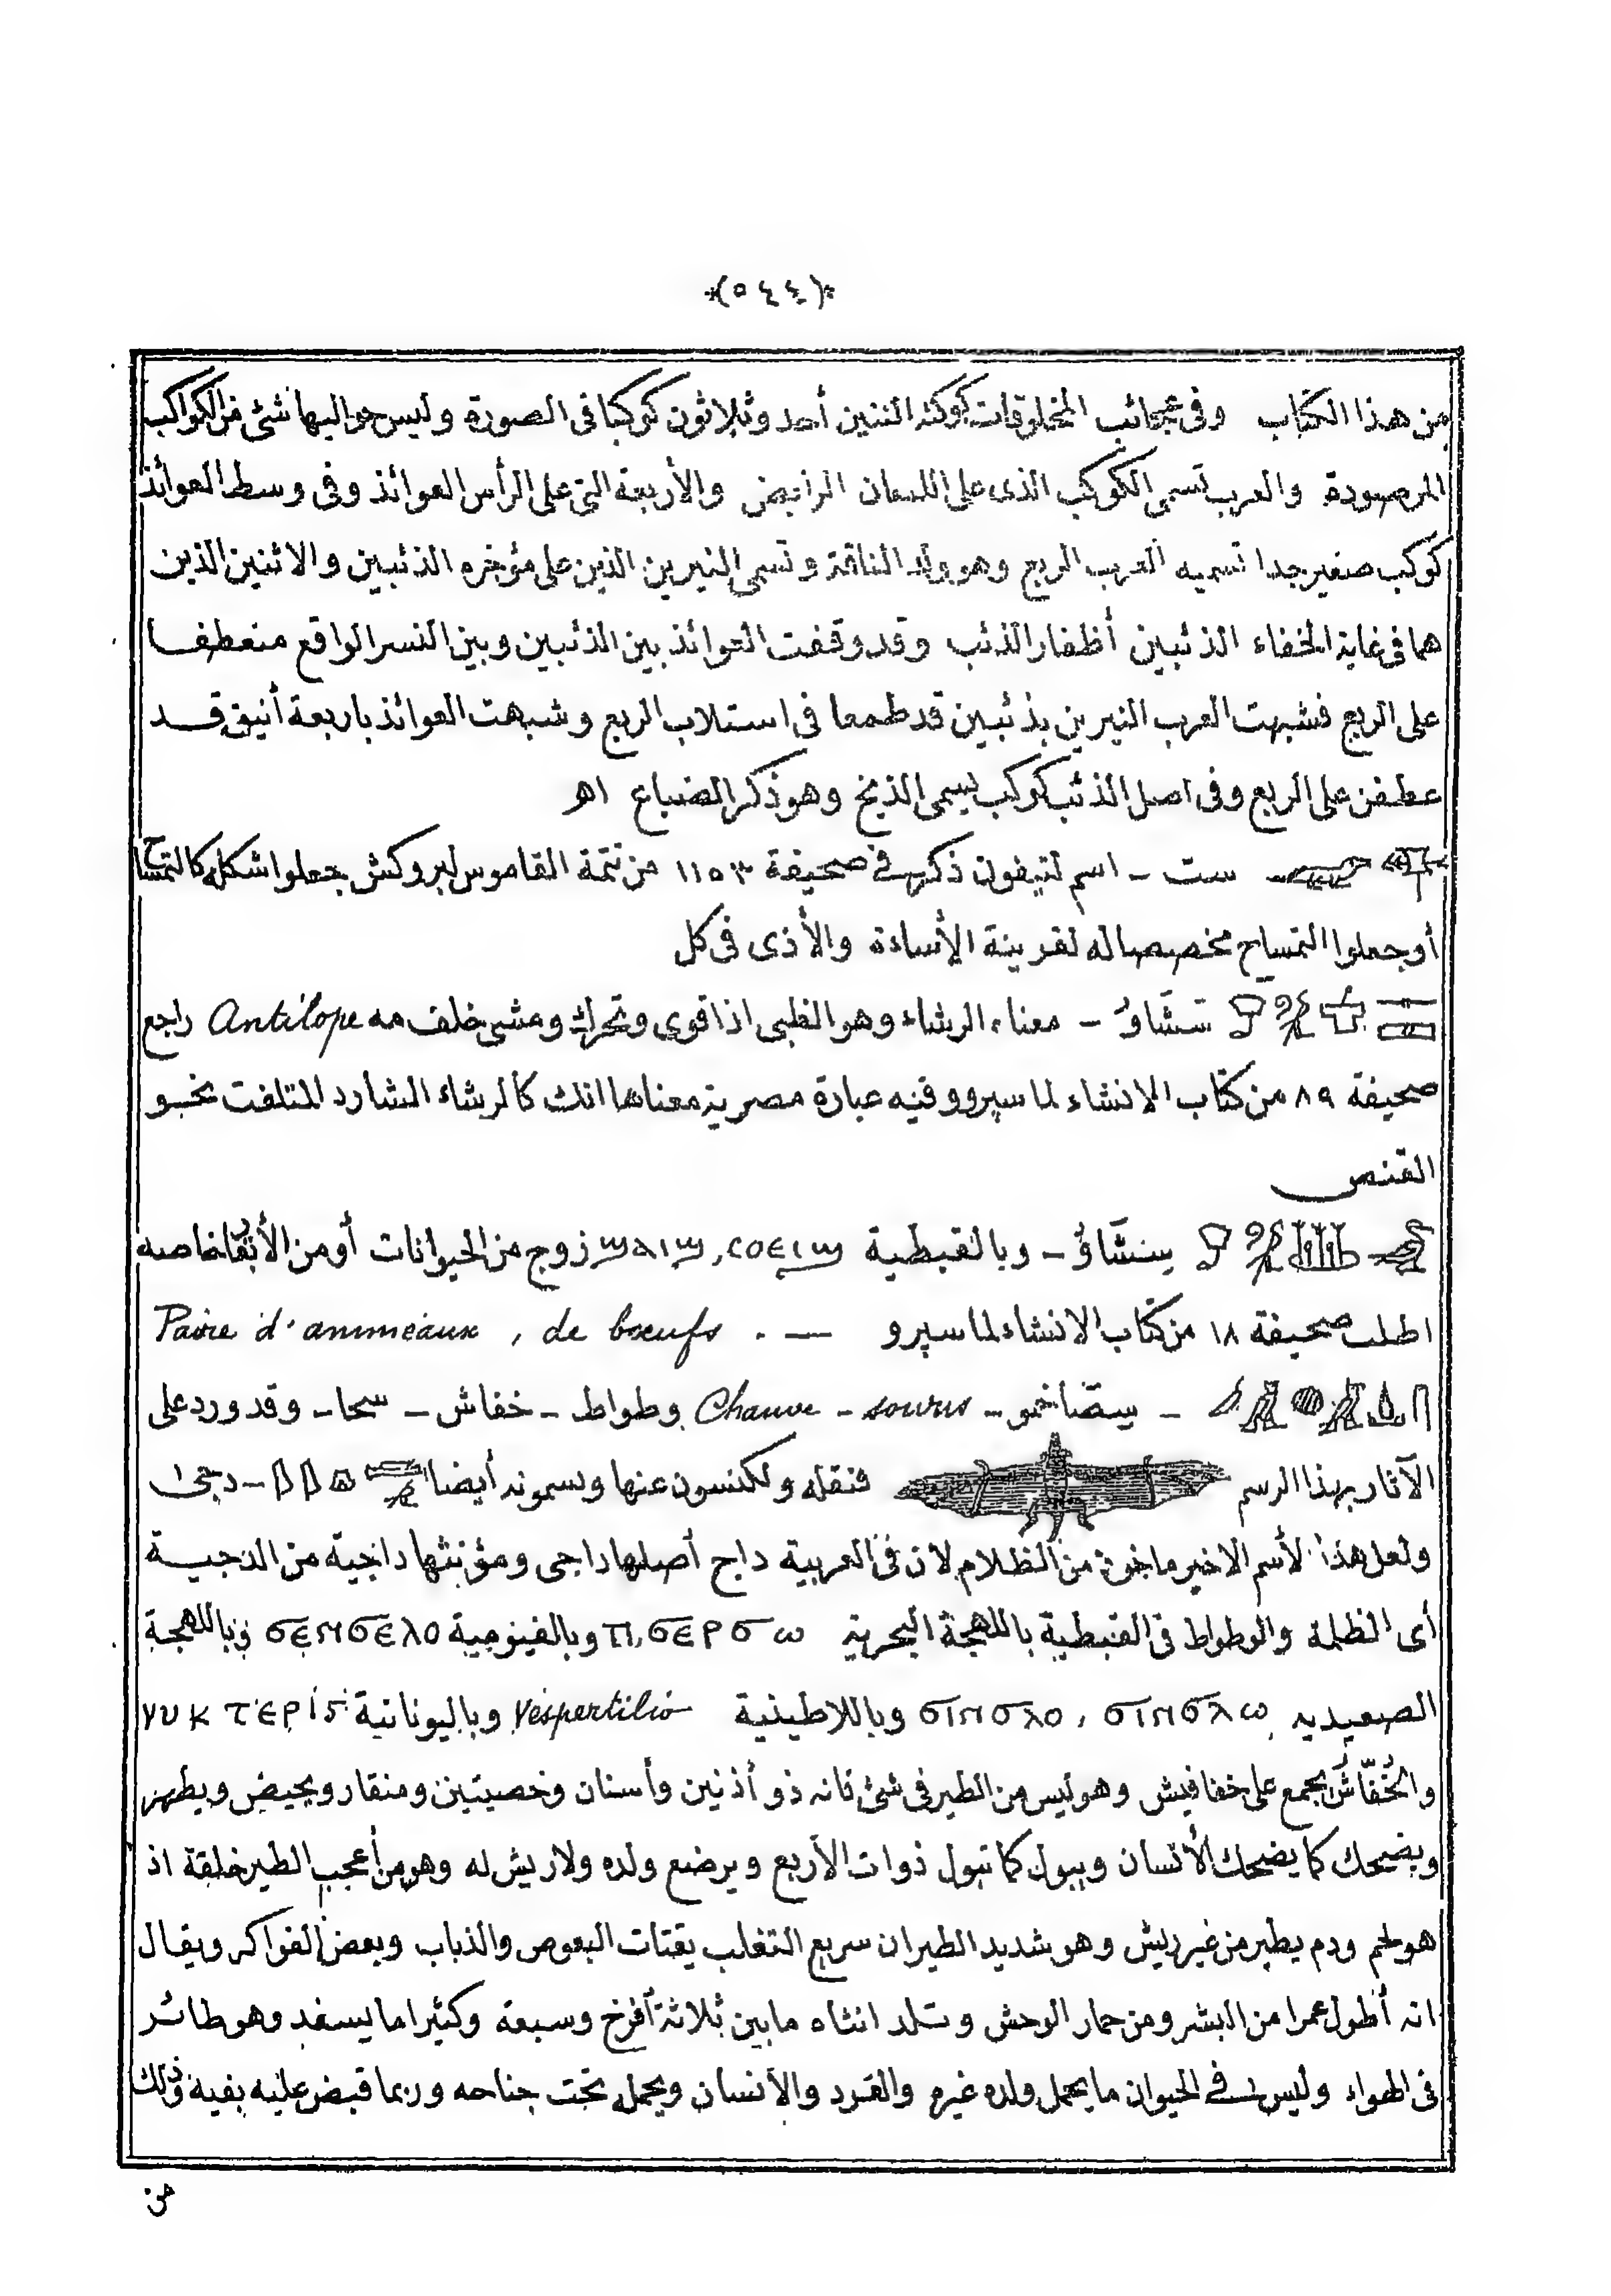 *(٥٤٤)*
من هذا الكتاب وفى عجائب المخلوقات كوكبة التنين أحد وثلاثون كوكبا فى الصورة وليس حواليها شئ من الكواكب
المرصودة والعرب تسمى الكوكب الذى على اللسان الرابض والأربعة التى على الرأس العوائذ وفى وسط العوائذ
كوكب صغير جدا تسميه العرب الربع وهو ولد الناقة وتسمى النيرين الذين على مؤخره الذئبين والاثنين الذين
هما فى غاية الخفاء الذئبين أظفار الذئب وقد وقفت العوائذ بين الذئبين وبين النسر الواقع منعطفـا
على الربع فشبهت العرب النيرين بذئبين قد طمعا فى استلاب الربع وشبهت العوائذ باربعة أنيق قـد
عطفن على الربع وفى اصل الذئب كوكب يسمى الذيخ وهو ذكر الضباع اهـ
ست – اسم لتيفون ذكر فى صحيفة ١١٥٣ من تتمة القاموس لبروكش جعلوا شكله كالتمساح
أو جعلوا التمساح مخصصا له لقرينة الأساءة والأذى فى كل
تَشَاوُ – معناه الرشاء وهو الظبى اذا قوى وتحرك ومشى خلف امه Antilope راجع
صحيفة ٨٩ من كتاب الانشاء لماسپرو وفيه عبارة مصرية معناها انك كالرشاء الشارد المتلفت نحـو
القنص
سِنشَّاوُ – وبالقبطية ϣⲁⲓϣ, ⲥⲟⲉⲓϣ زوج من الحيوانات أو من الأبقار خاصه
اطلب صحيفة ١٨ من كتاب الانشاء لماسپرو — . Paire d'animeaux , de bœufs
– سِتضاخمو – Chauve - souris وطواط – خفاش – سحا – وقد ورد على
الآثار بهذا الرسم فنقله ولكنسون عنها ويسمونه أيضا – دجى
ولعل هذا الأسم الاخير ماخوذ من الظلام لان فى العربية داج أصلها داجى ومؤنثها داجية من الدجيـة
أى الظلمة والوطواط فى القبطية باللهجة البحرية ⲡⲓϭⲉⲣϭⲱ وبالفيومية ϭⲉⲛϭⲉⲗⲟ وباللهجة
الصعيديه ϭⲓⲛϭⲗⲟ , ϭⲓⲛϭⲗⲱ وباللاطينية Vespertilio وباليونانية νυκτερίς
والخُفّاش يجمع على خفافيش وهو ليس من الطير فى شئ فانه ذو أذنين وأسنان وخصيتين ومنقار ويحيض ويطهر
ويضحك كما يضحك الأنسان ويبول كما تبول ذوات الأربع ويرضع ولده ولا ريش له وهو من أعجب الطير خلقة اذ
هو لحم ودم يطير من غير ريش وهو شديد الطيران سريع التقلب يقتات البعوض والذباب وبعض الفواكه ويقال
انه أطول عمرا من البشر ومن حمار الوحش وتلد انثاه ما بين ثلاثة أفرخ وسبعة وكثيرا ما يسفد وهو طائـر
فى الهواء وليس فى الحيوان ما يحمل ولده غيره والقرد والأنسان ويحمله تحت جناحه وربما قبض عليه بفيه وذلك
من